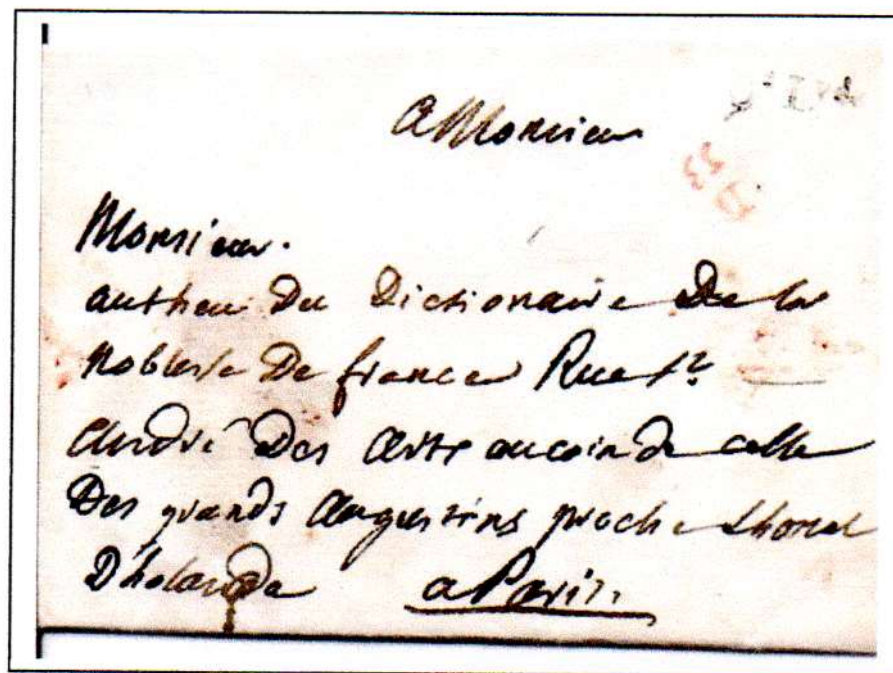 A Monsieur
33
Monsieur.
autheu du Dictionaire De la
Noblesse De france Rue St
André Des Arts au coin de celle
Des grands Augustins proche Lhotel
D'holande a Paris.